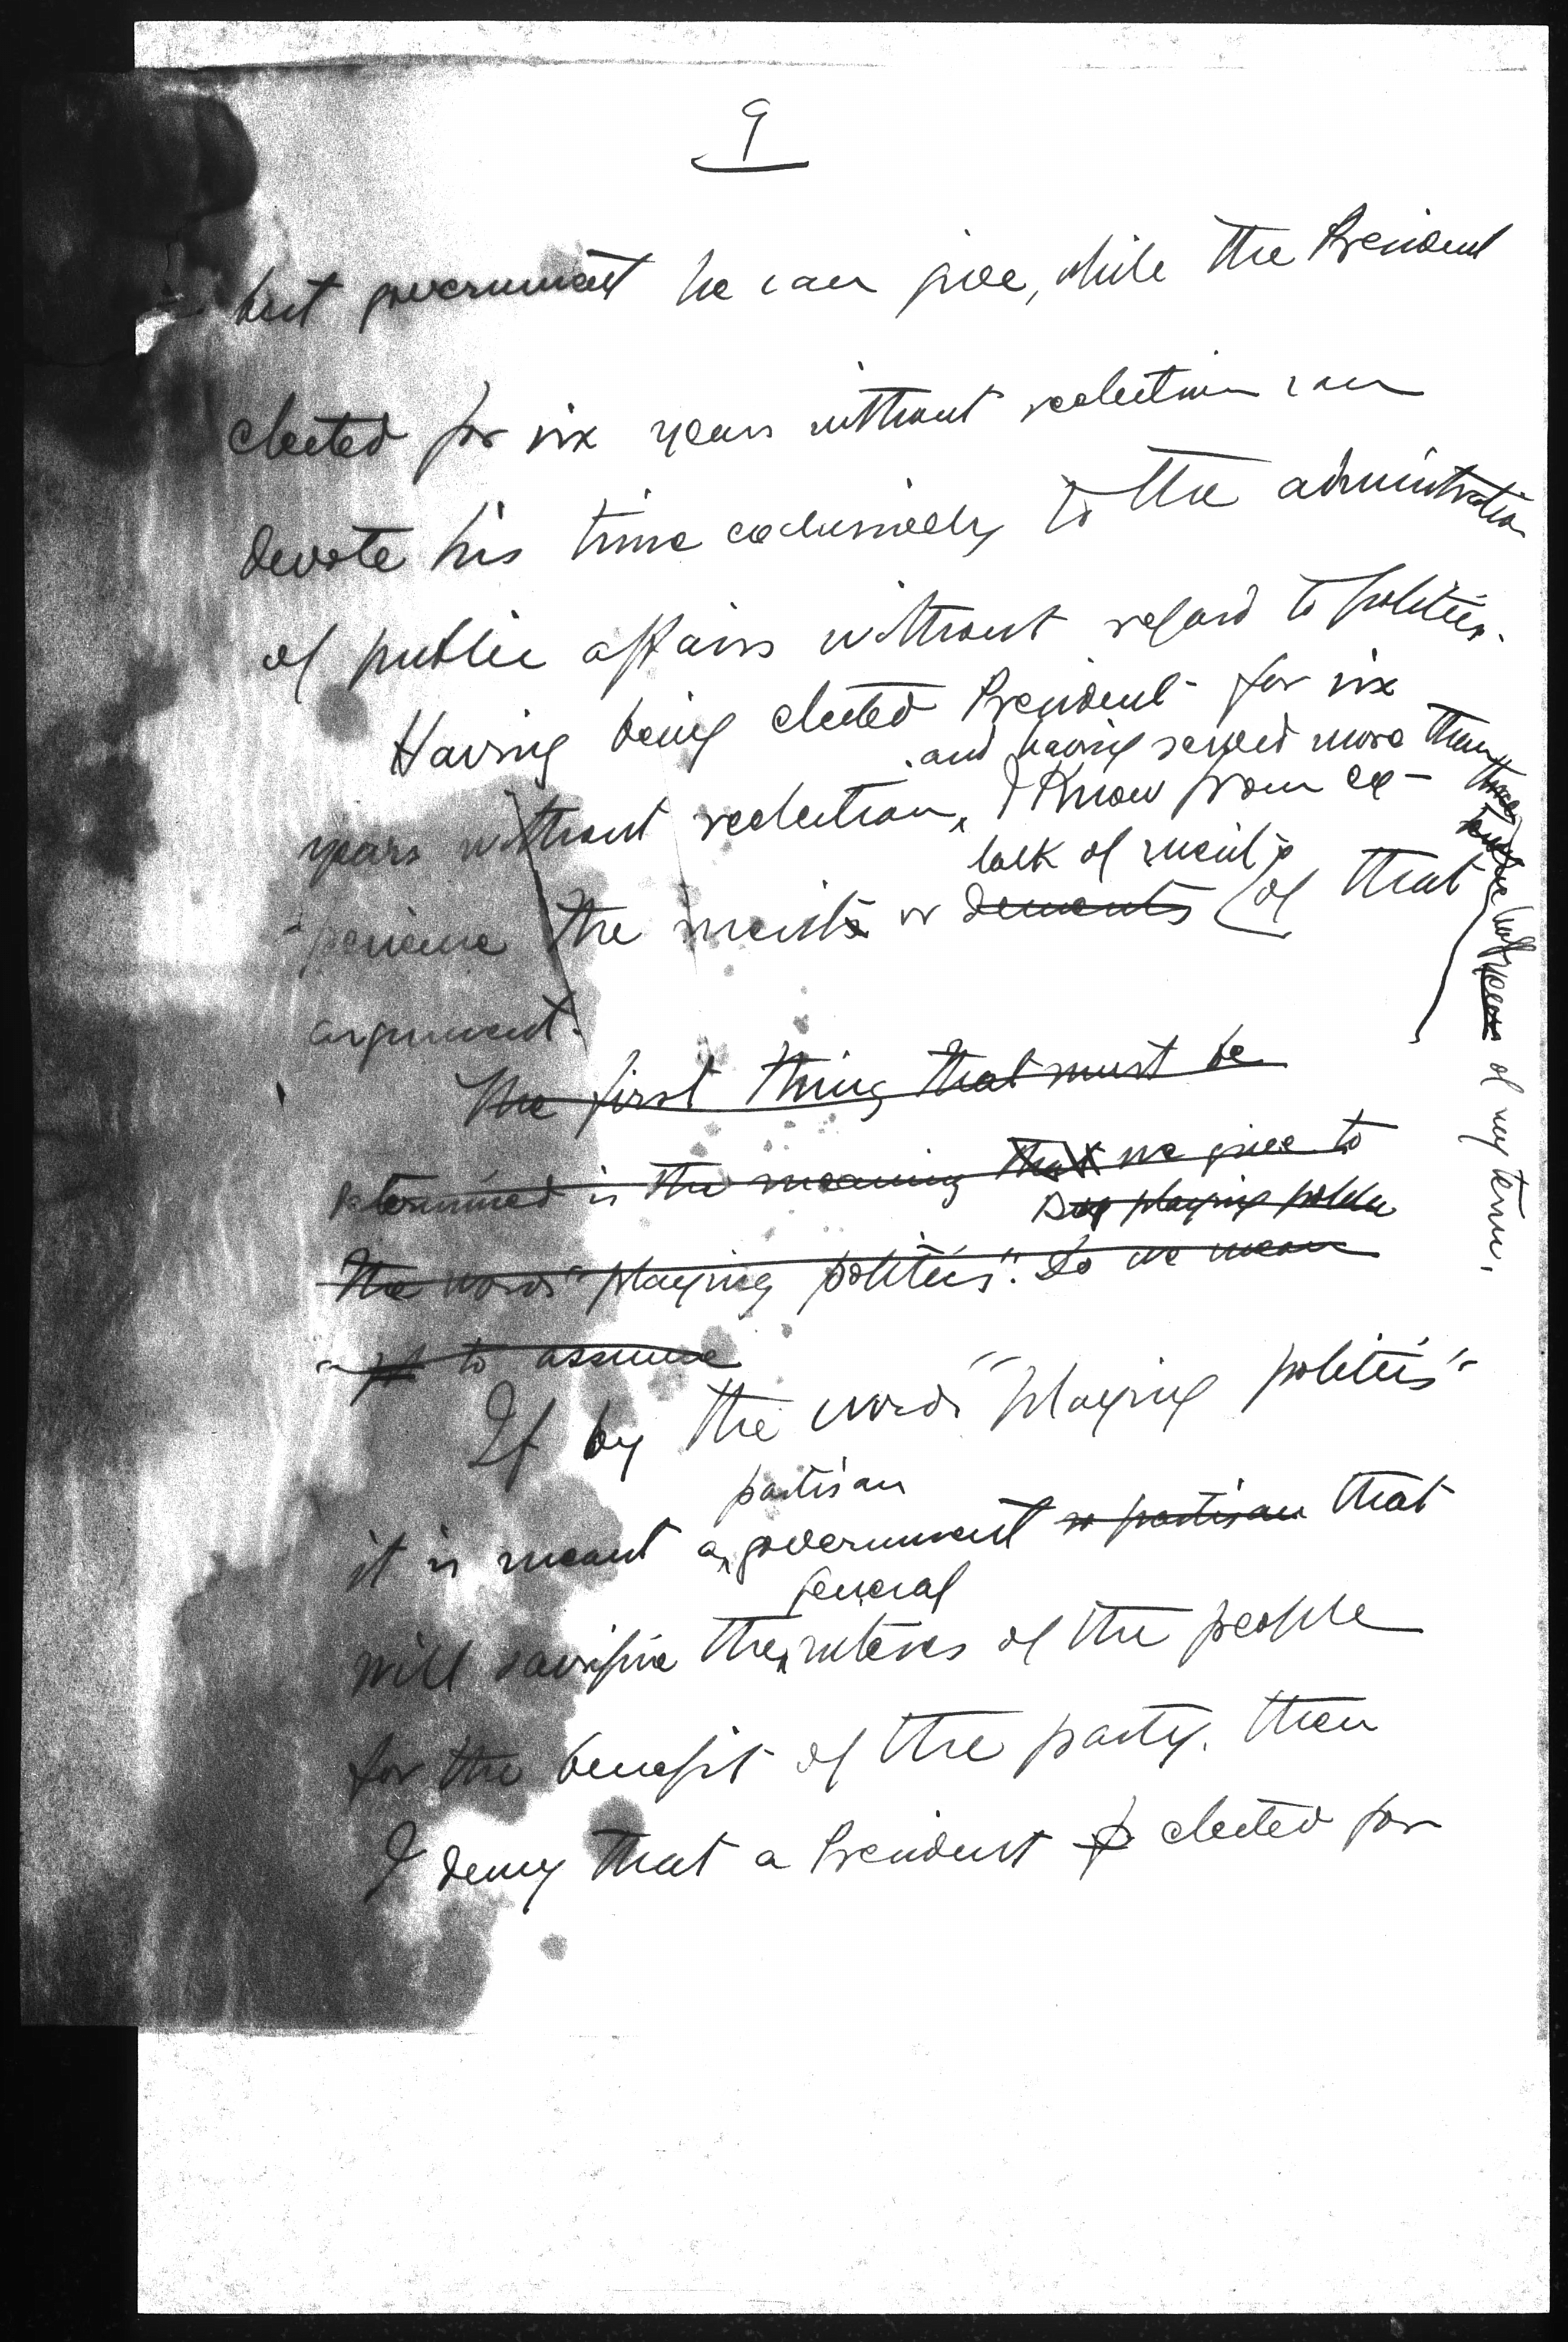 9
best government he can give, while the President
elected for six years without reelection can
devote his time exclusively to the administration
of public affairs without regard to politics.
Having being elected President for six
and having served more than
years without reelection, I know from ex-
lack of merit
perience the merits or demerits of that
half years of my term.
argument.
The first thing that must be
determined is the meaning that we give to
playing politics
the words "playing politics". Do we mean
to assume
If by the words "playing politics"
partisan
it is meant a government so partisan that
general
will sacrifice the interes of the people
for the benefit of the party, then
I deny that a President elected for